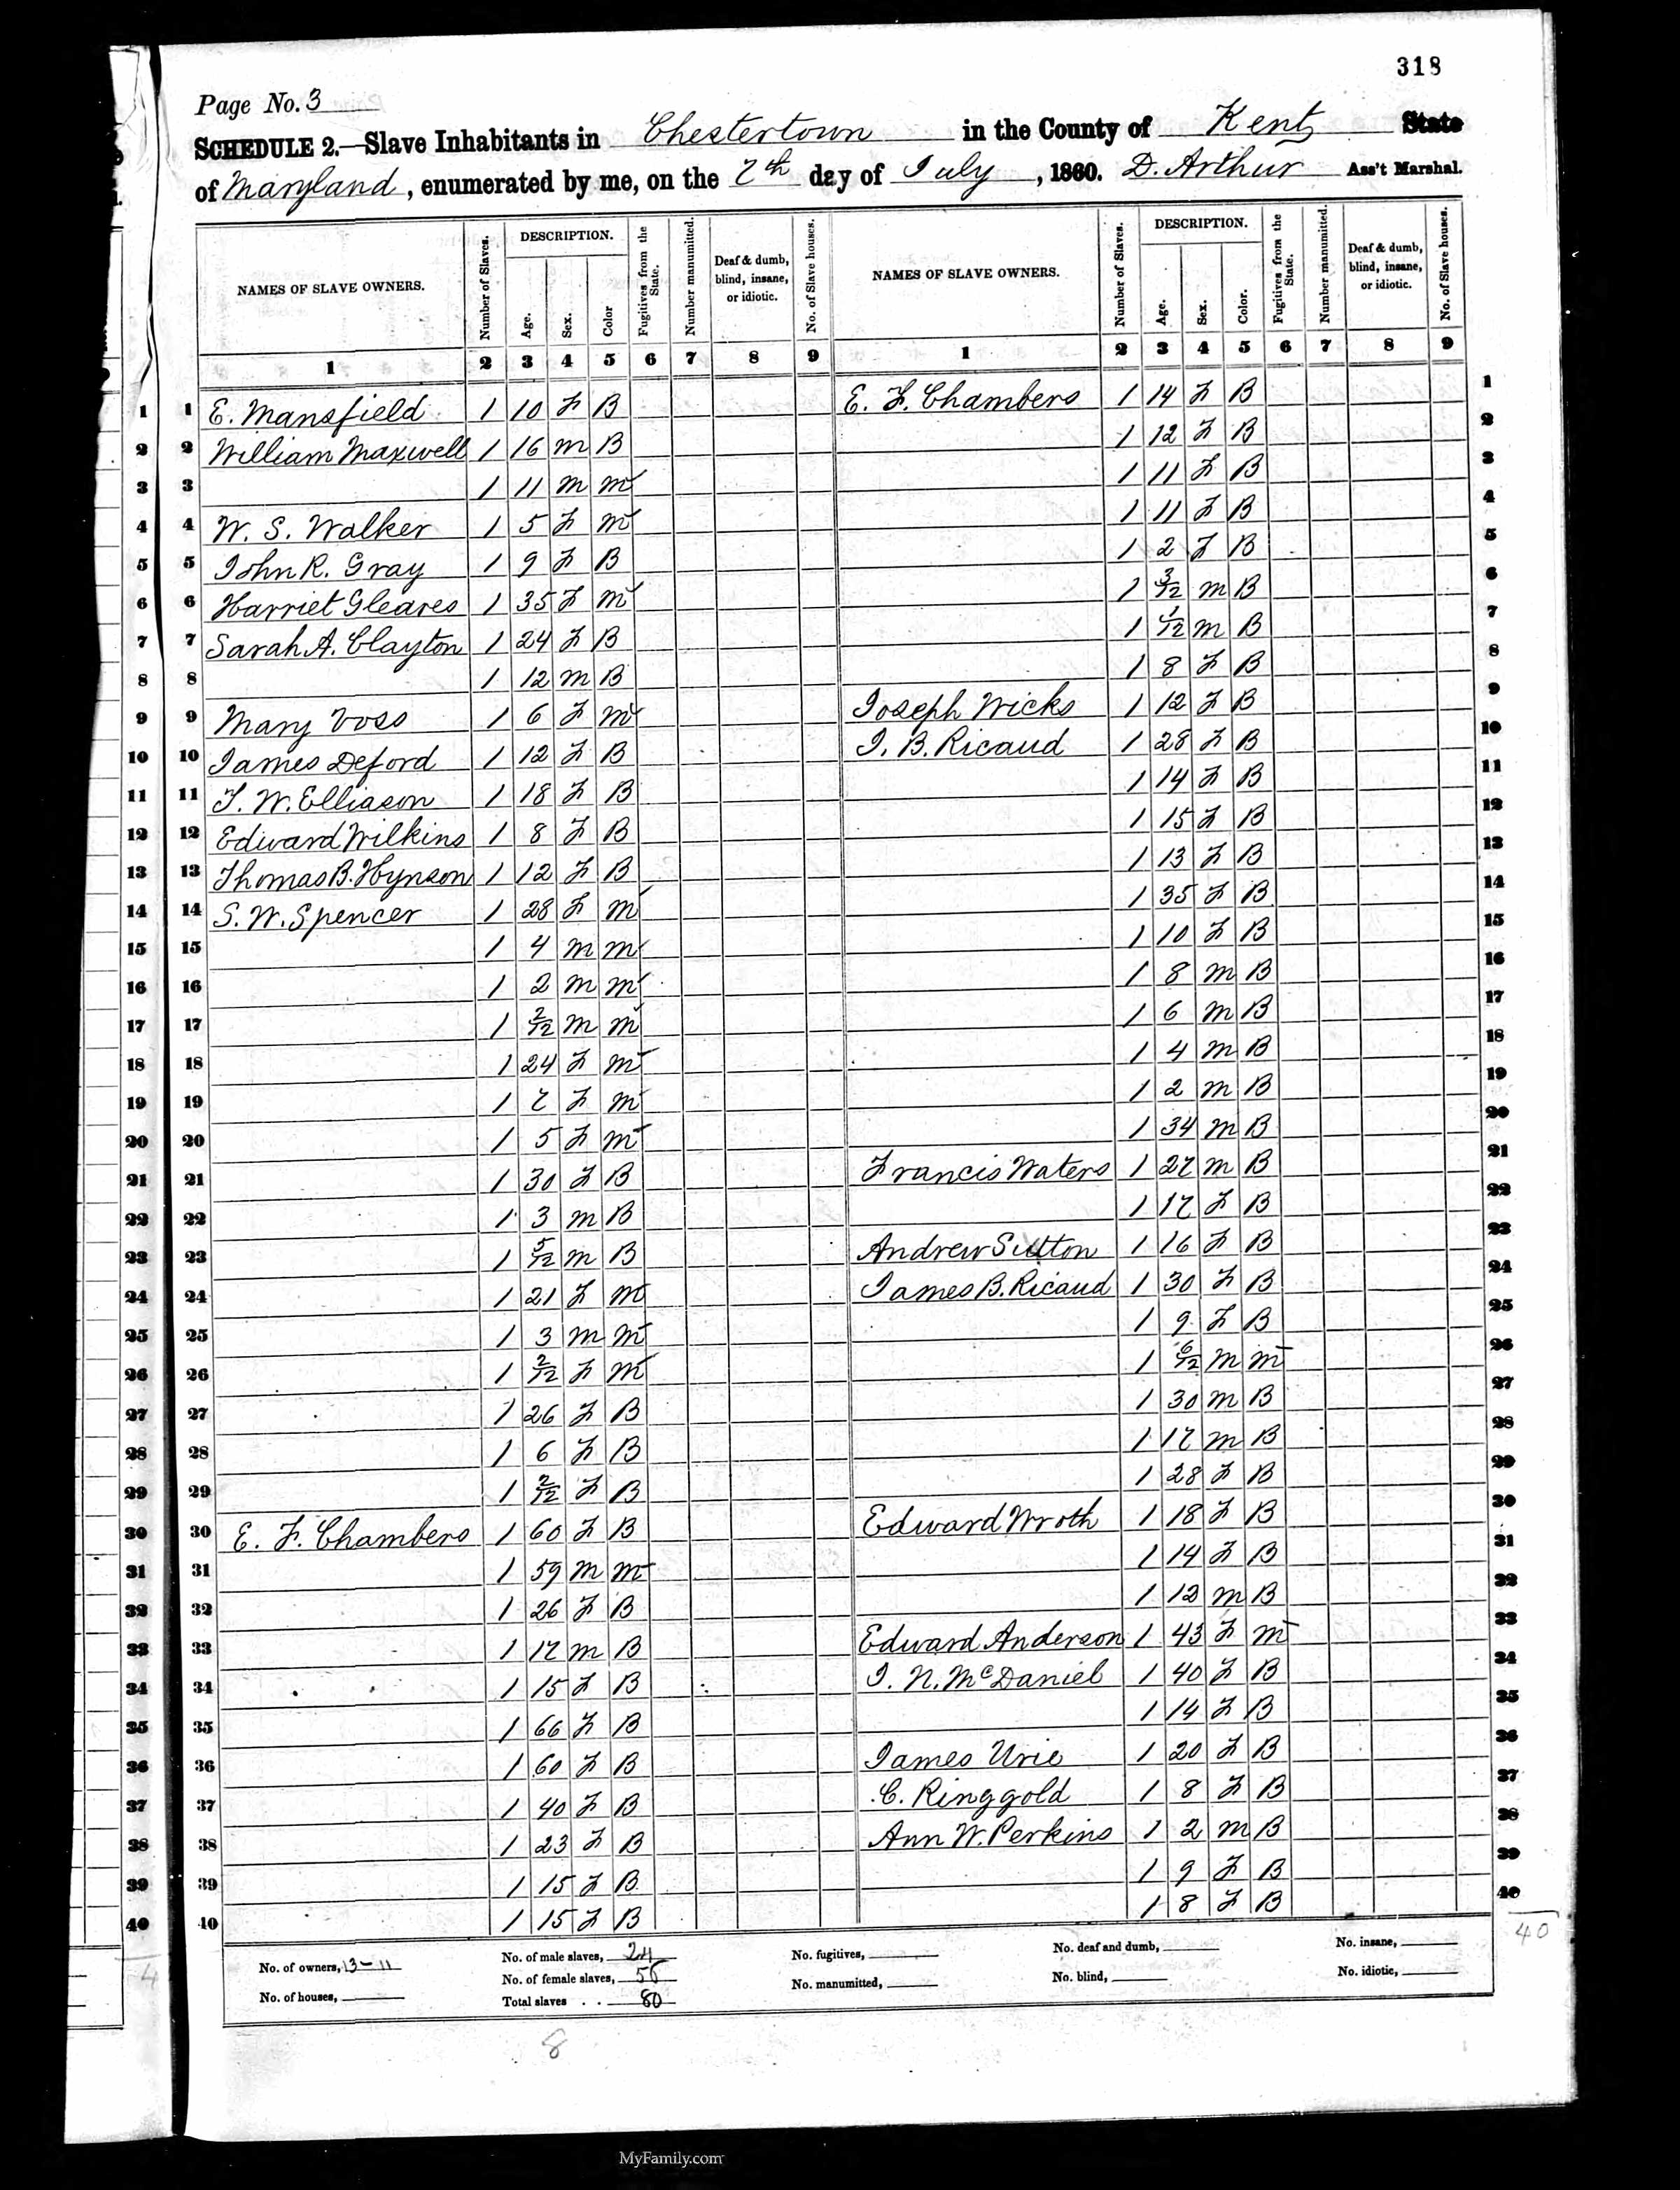 318
Page No. 3
SCHEDULE 2.—Slave Inhabitants in Chestertown in the County of Kent State
of Maryland, enumerated by me, on the 7th day of July, 1860. D. Arthur Ass't Marshal.
NAMES OF SLAVE OWNERS. Number of Slaves. DESCRIPTION. Age. Sex. Color Fugitives from the State. Number manumitted. Deaf & dumb, blind, insane, or idiotic. No. of Slave houses.
1 2 3 4 5 6 7 8 9
1 E. Mansfield 1 10 F B
2 William Maxwell 1 16 m B
3 1 11 m m
4 W. S. Walker 1 5 F m
5 John R. Gray 1 9 F B
6 Harriet Gleaves 1 35 F m
7 Sarah A. Clayton 1 24 F B
8 1 12 m B
9 Mary Voss 1 6 F m
10 James Deford 1 12 F B
11 T. W. Elliason 1 18 F B
12 Edward Wilkins 1 8 F B
13 Thomas B. Hynson 1 12 F B
14 S. W. Spencer 1 28 F m
15 1 4 m m
16 1 2 m m
17 1 2/12 m m
18 1 24 F m
19 1 7 F m
20 1 5 F m
21 1 30 F B
22 1 3 m B
23 1 5/12 m B
24 1 21 F m
25 1 3 m m
26 1 2/12 F m
27 1 26 F B
28 1 6 F B
29 1 2/12 F B
30 E. F. Chambers 1 60 F B
31 1 59 m m
32 1 26 F B
33 1 17 m B
34 1 15 F B
35 1 66 F B
36 1 60 F B
37 1 40 F B
38 1 23 F B
39 1 15 F B
40 1 15 F B
NAMES OF SLAVE OWNERS. Number of Slaves. DESCRIPTION. Age. Sex. Color. Fugitives from the State. Number manumitted. Deaf & dumb, blind, insane, or idiotic. No. of Slave houses.
1 2 3 4 5 6 7 8 9
E. F. Chambers 1 14 F B 1
1 12 F B 2
1 11 F B 3
1 11 F B 4
1 2 F B 5
1 3/12 m B 6
1 1/12 m B 7
1 8 F B 8
Joseph Wicks 1 12 F B 9
J. B. Ricaud 1 28 F B 10
1 14 F B 11
1 15 F B 12
1 13 F B 13
1 35 F B 14
1 10 F B 15
1 8 m B 16
1 6 m B 17
1 4 m B 18
1 2 m B 19
1 34 m B 20
Francis Waters 1 27 m B 21
1 17 F B 22
Andrew Sutton 1 16 F B 23
James B. Ricaud 1 30 F B 24
1 9 F B 25
1 6/12 m m 26
1 30 m B 27
1 17 m B 28
1 28 F B 29
Edward Wroth 1 18 F B 30
1 14 F B 31
1 12 m B 32
Edward Anderson 1 43 F m 33
J. N. McDaniel 1 40 F B 34
1 14 F B 35
James Urie 1 20 F B 36
C. Ringgold 1 8 F B 37
Ann W. Perkins 1 2 m B 38
1 9 F B 39
1 8 F B 40
40
No. of owners, 13-11 No. of male slaves, 24 No. fugitives, No. deaf and dumb, No. insane,
No. of houses, No. of female slaves, 56 No. manumitted, No. blind, No. idiotic,
Total slaves . . 80
8
MyFamily.com